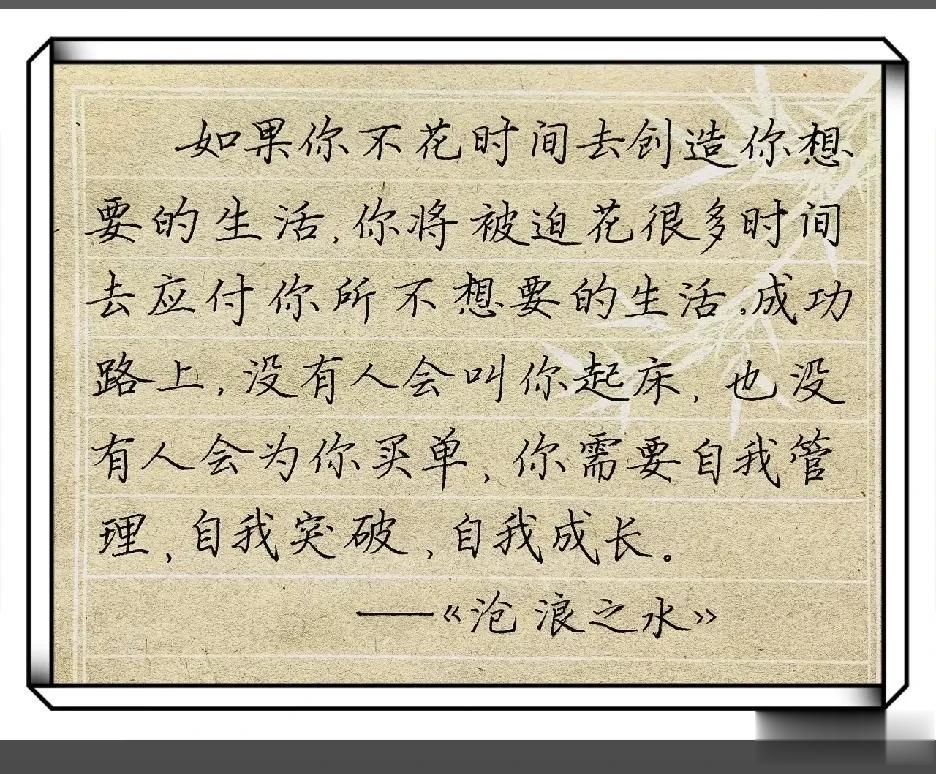 如果你不花时间去创造你想
要的生活,你将被迫花很多时间
去应付你所不想要的生活。成功
路上,没有人会叫你起床,也没
有人会为你买单,你需要自我管
理,自我突破,自我成长。
——《沧浪之水》